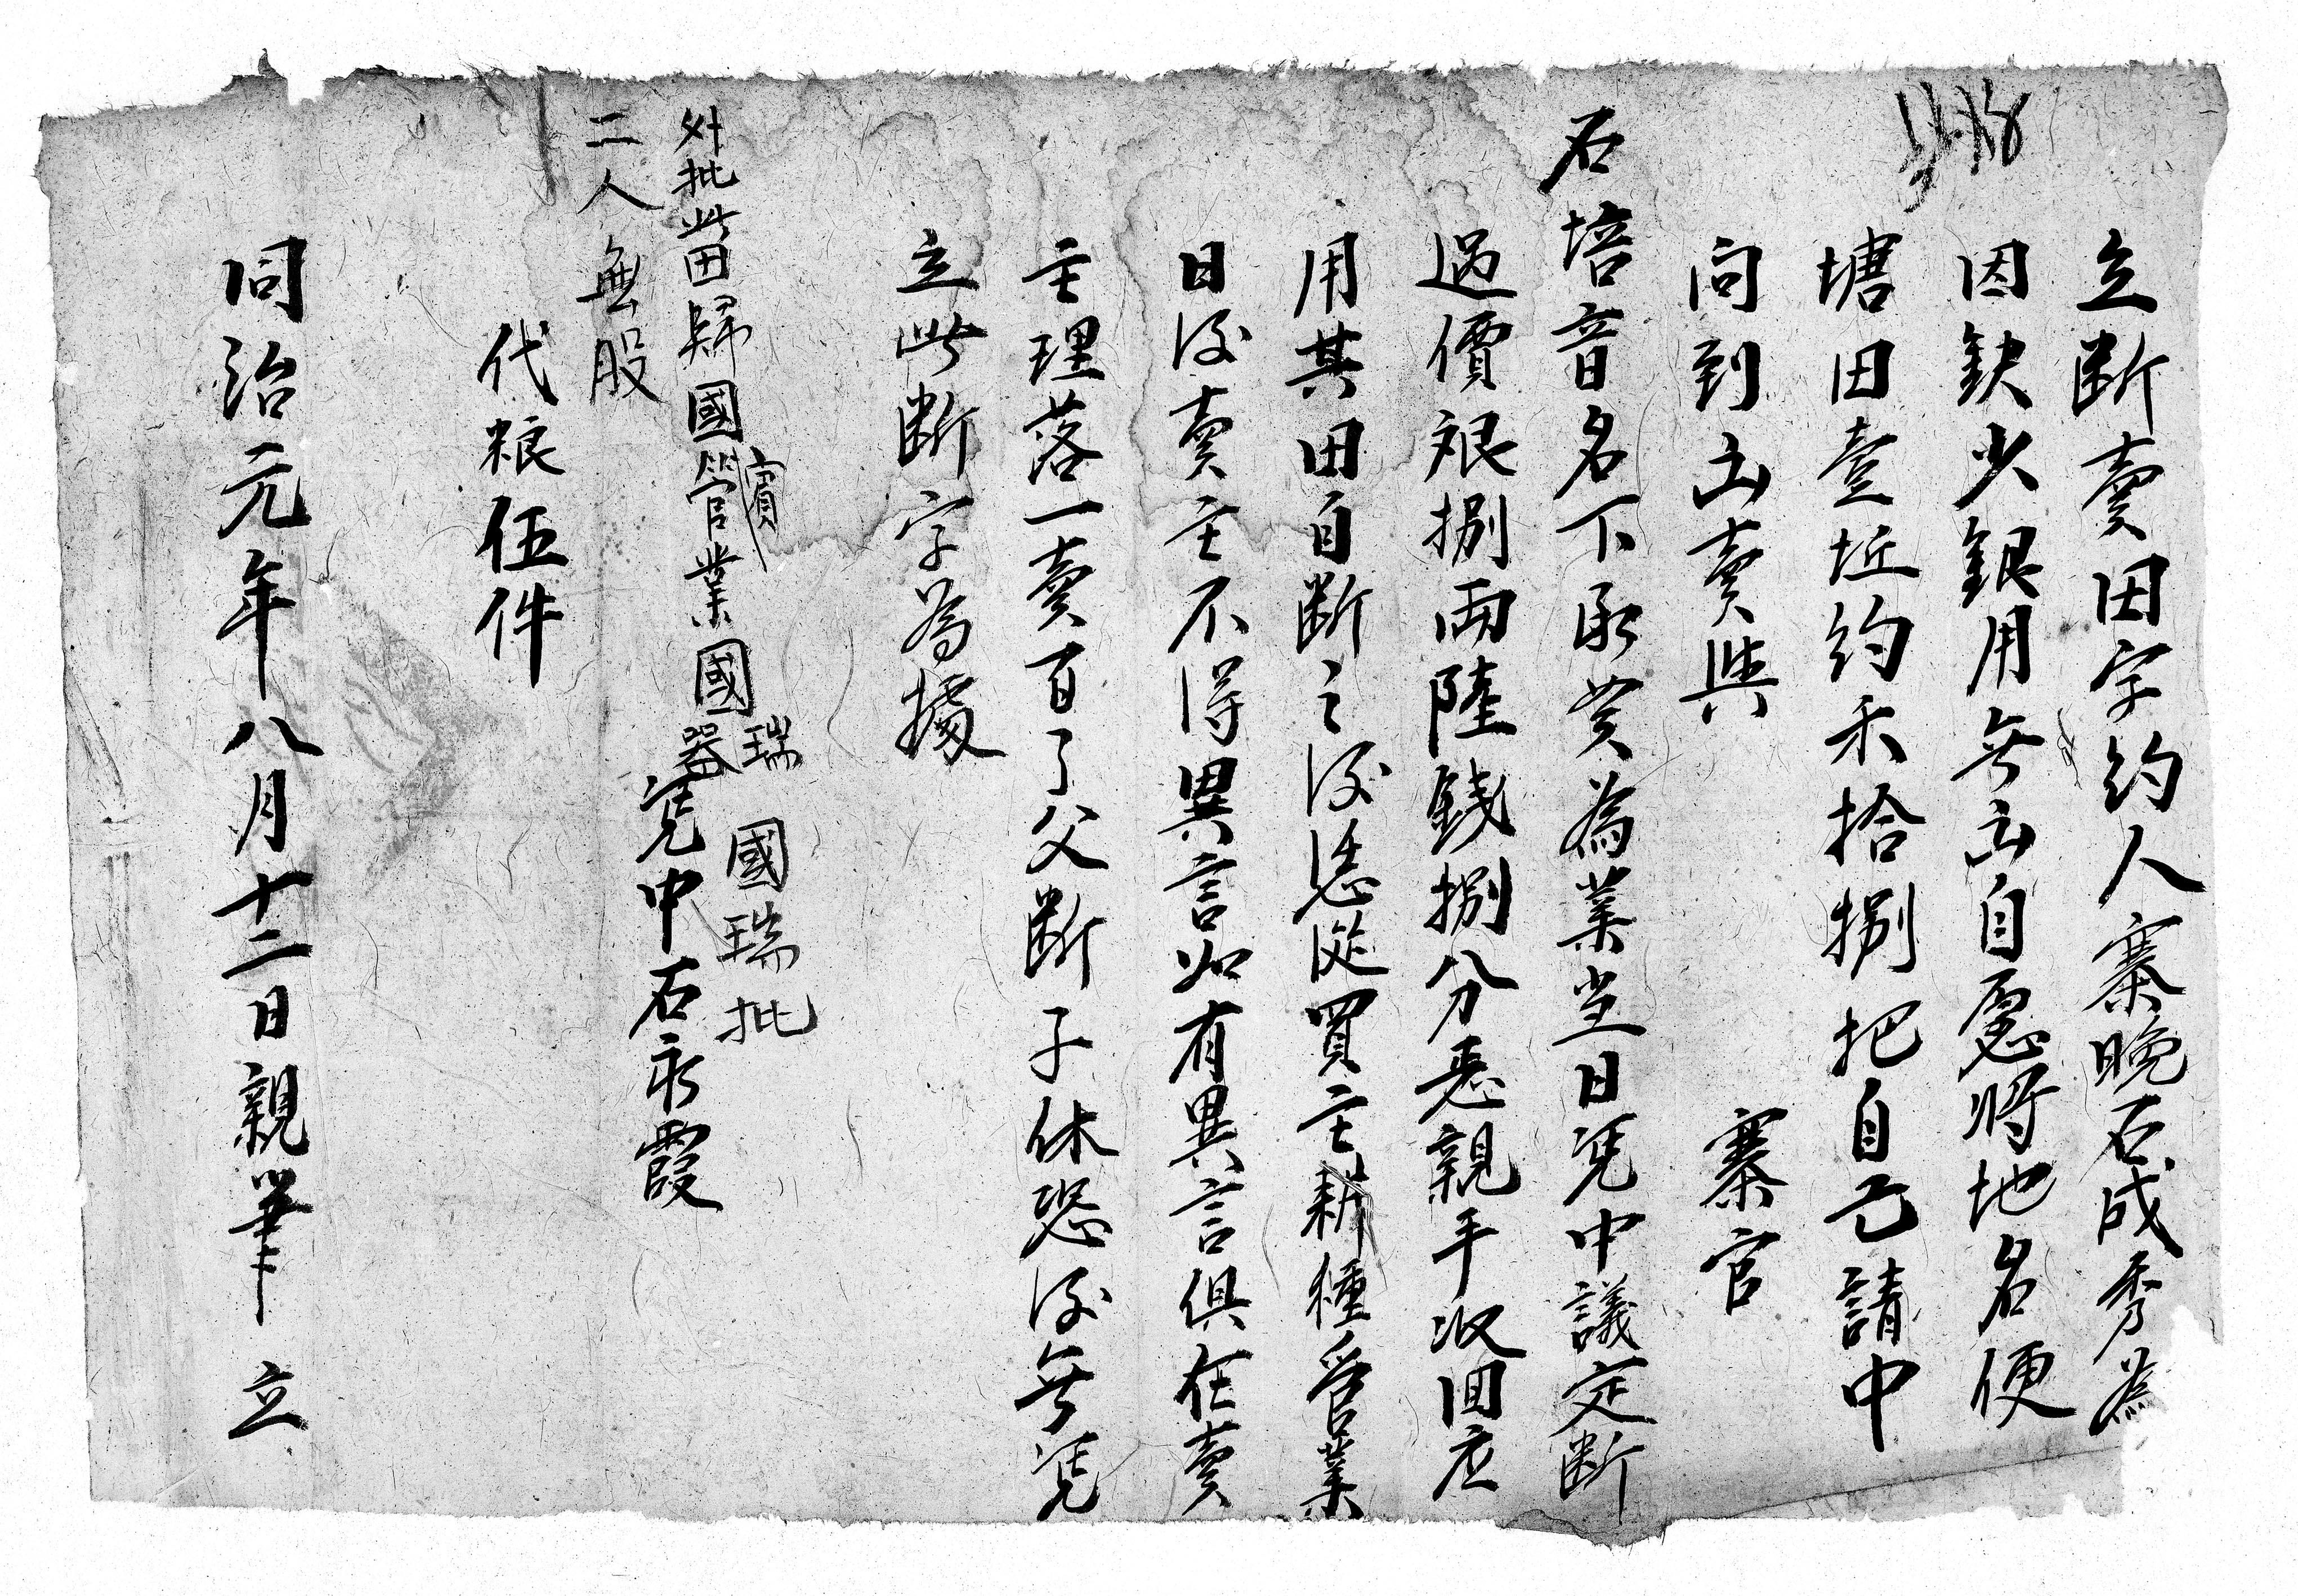 立断賣田字約人寨晚石成秀為
因缺少銀用無出自愿將地名便
塘田壹坵約禾拾捌把自己請中
問到出賣與　寨官
石培音名下承買為業当日凭中議定断
過價艮捌兩陸錢捌分悉親手收回应
用其田自断之後恁從買主耕種管業
日後賣主不得異言如有異言俱在賣
主理落一賣百了父断子休恐後無凭
立此断字為據
外批此田歸國賓管業國瑞器
二人無股
國瑞批
凭中石永霞
代粮伍件
同治元年八月十二日親筆　立